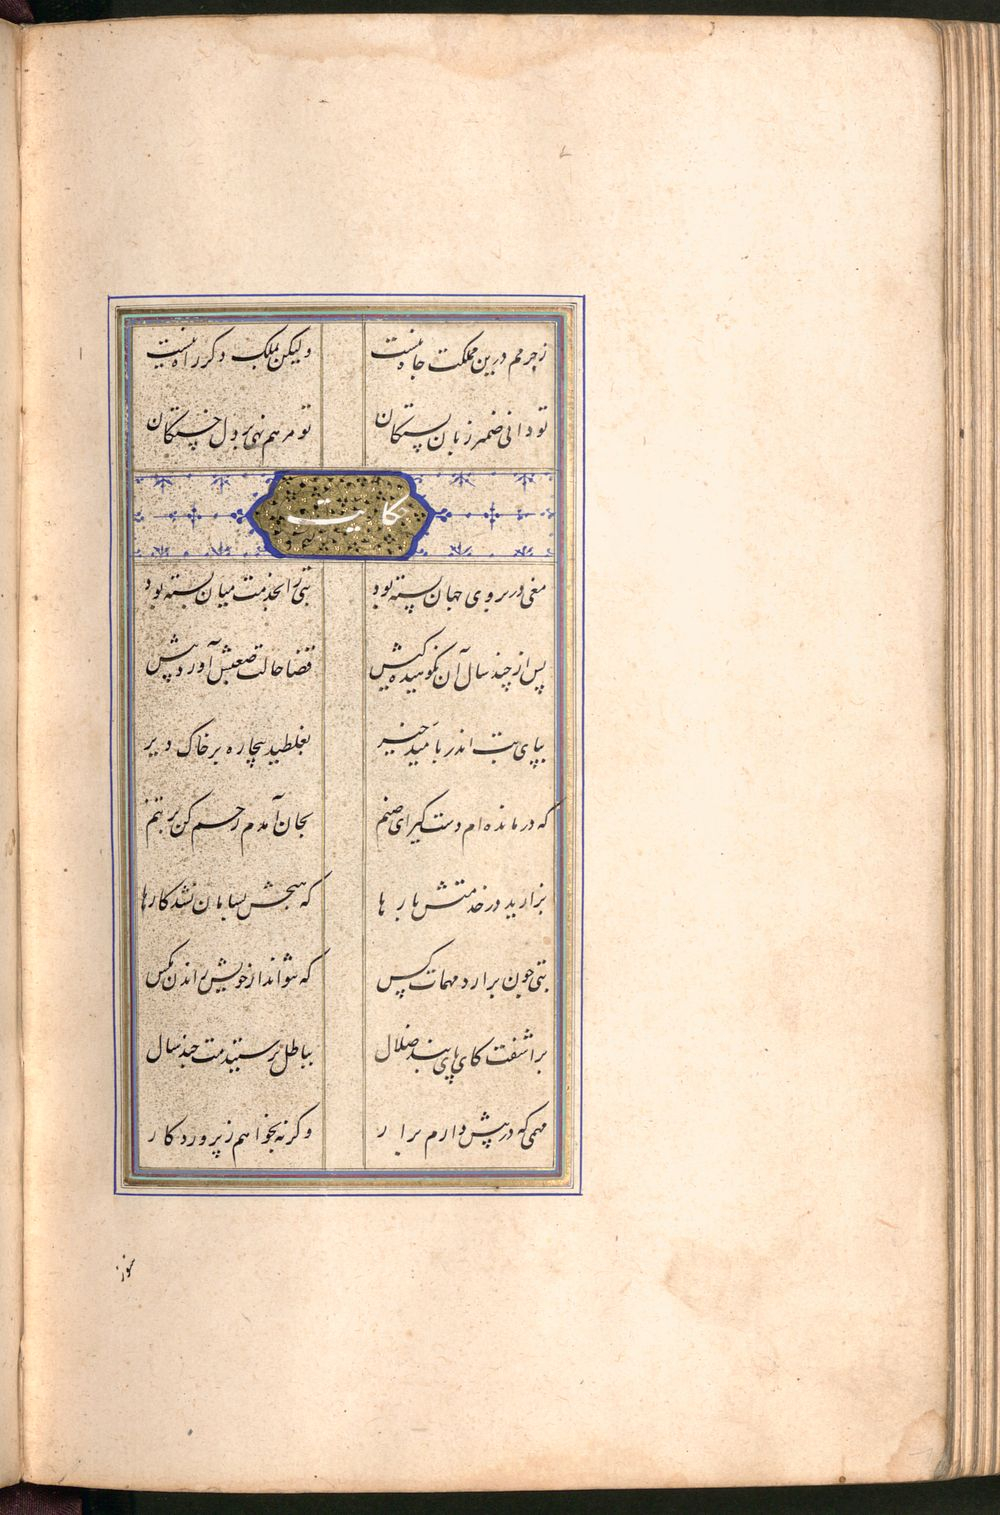 ز جرمم درین مملکت جاه نیست ولیکن بملک دکر راه نیست
تو دانی ضمیر زبان بستکان تو مرهم نهی بر دل خستکان
حکایت
مغی در بروی جهان بسته بود بتی را بخدمت میان بسته بود
پس از چند سال آن نکوهیده کیش قضا حالت صعبش آورد پیش
بپای بت اندر بامید خیر بغلطید بیچاره بر خاک دیر
که درمانده ام دست کیر ای صنم بجان آمدم رحم کن بر تنم
بزارید در خدمتش بارها که هیچش بسامان نشد کارها
بتی چون برارد مهمات کس که نتواند از خویش راندن مکس
براشفت کای پای بند ضلال بباطل پرستیدمت چند سال
مهمی که در پیش دارم برار وکرنه بخواهم ز پروردکار
هنوز